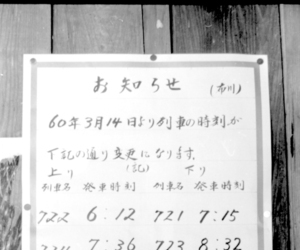 お知らせ
(布川)
60年3月14日より列車の時刻が
下記の通り変更になります。
(記)
上り 下り
列車名 発車時刻 列車名 発車時刻
722 6:12 721 7:15
7:36 723 8:32